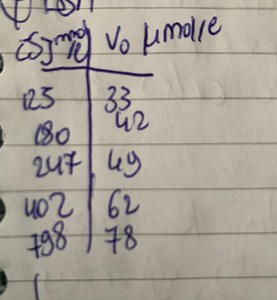 [S] mmol/l V₀ μmol/l
125 33
180 42
247 49
402 62
798 78